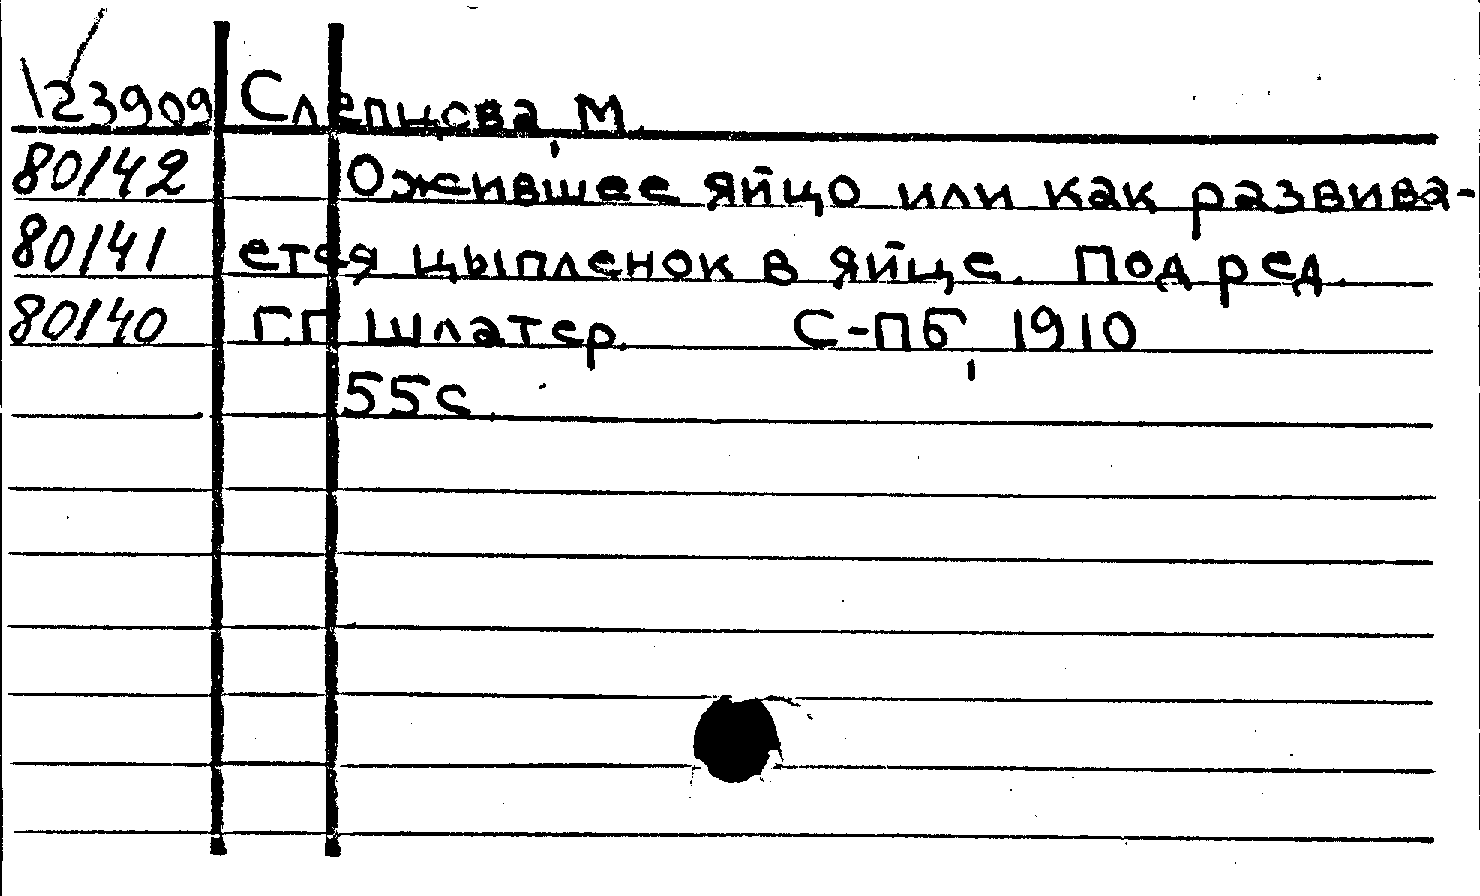 \23909 Слепцова, М.
80/142 Ожившее яйцо или как развива-
80/141 ется цыпленок в яйце. Под ред.
80/140 Г.Г. Шлатер. С-ПБ, 1910
55с.